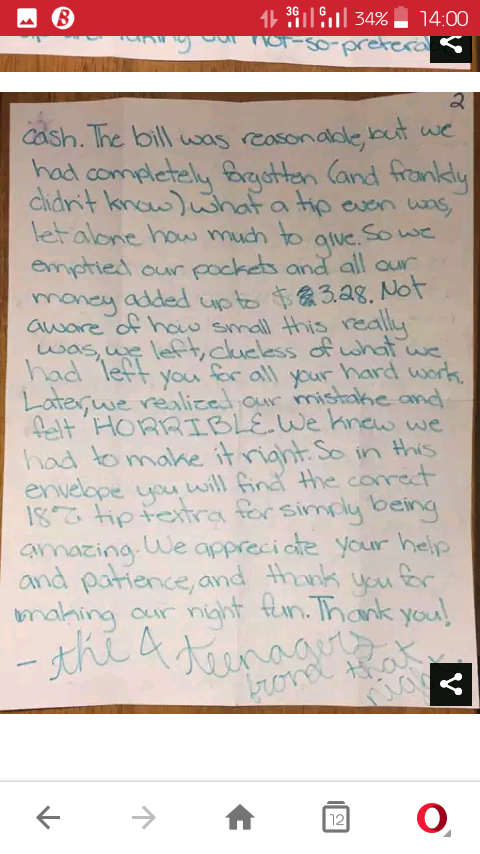 3G G 34% 14:00
not-so-prefera
2
cash. The bill was reasonable, but we
had completely forgotten (and frankly
didn't know) what a tip even was,
let alone how much to give. So we
emptied our pockets and all our
money added up to $3.28. Not
aware of how small this really
was, we left, clueless of what we
had left you for all your hard work.
Later, we realized our mistake and
felt HORRIBLE. We knew we
had to make it right. So in this
envelope you will find the correct
18% tip + extra for simply being
amazing. We appreciate your help
and patience, and thank you for
making our night fun. Thank you!
- the 4 teenagers
from that
12